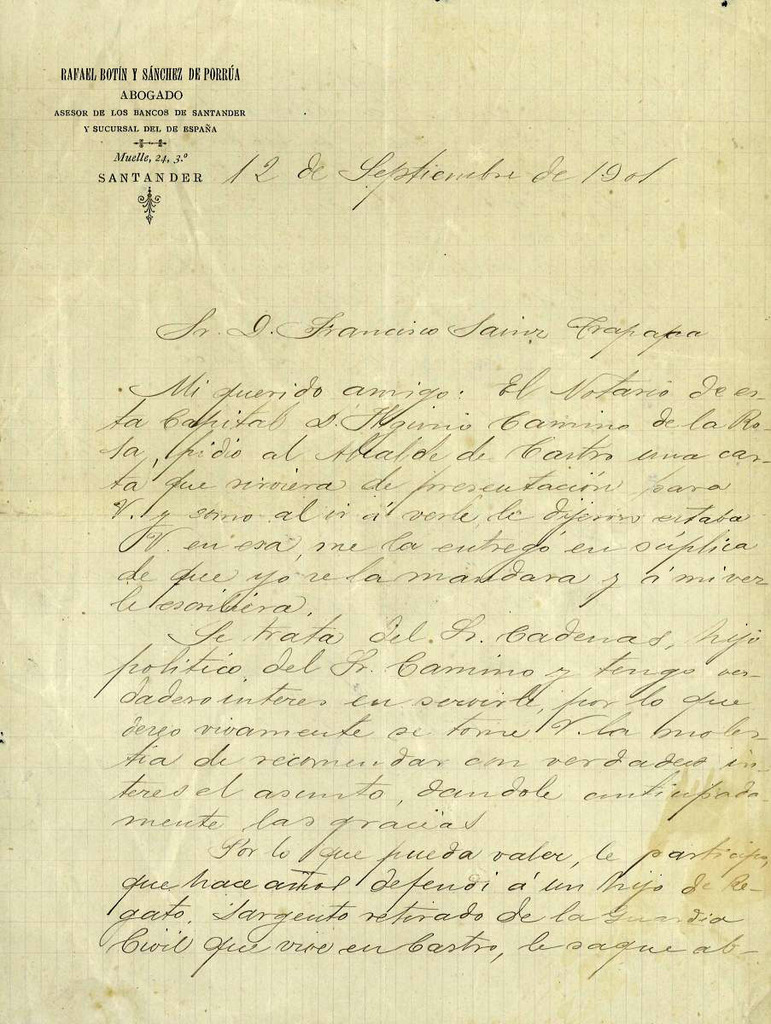 RAFAEL BOTÍN Y SÁNCHEZ DE PORRÚA
ABOGADO
ASESOR DE LOS BANCOS DE SANTANDER
Y SUCURSAL DEL DE ESPAÑA
Muelle, 24, 3.º
SANTANDER
12 de Septiembre de 1901
Sr. D. Francisco Sainz Trapaga
Mi querido amigo: El Notario de es-
ta Capital D. Higinio Camino de la Ro-
sa, pidió al Alcalde de Castro una car-
ta que sirviera de presentación para
V. y como al ir á verle le dijeron estaba
V. en esa, me la entregó en súplica
de que yo se la mandara y á mi vez
le escribiera.
Se trata del Sr. Cadenas, hijo
politico del Sr. Camino y tengo ver-
dadero interes en servirle, por lo que
deseo vivamente se tome V. la moles-
tia de recomendar con verdadero in-
teres el asunto, dandole anticipada-
mente las gracias
Por lo que pueda valer, le participo,
que hace años defendi á un hijo de Re-
gato, Sargento retirado de la Guardia
Civil que vive en Castro, le saque ab-